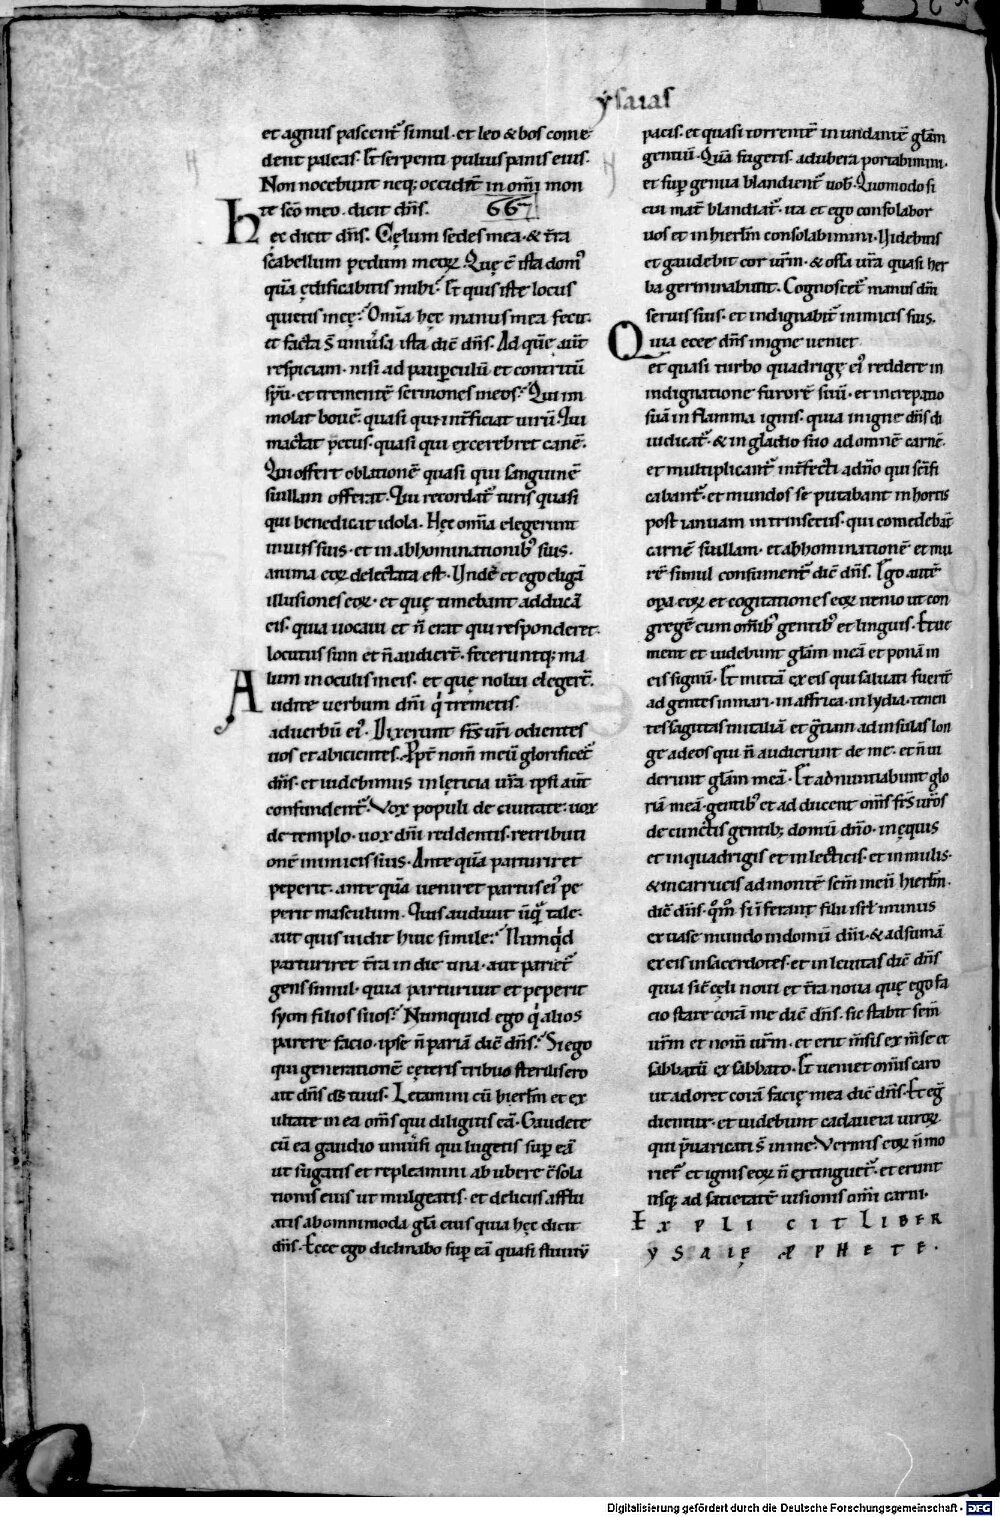 ẏsaias
et agnus pascent᷑ simul · et leo & bos come
dent paleas · Et serpenti puluis panis eius ·
Non nocebunt neq; occidēt in om̄i mon
te sc̄o meo . dicit dn̄s . 66
Hęc dicit dn̄s . Cęlum sedes mea · & t̄ra
scabellum pedum meoꝝ . Quę ē ista domꝰ
quā ędificabitis mihi · Et quis iste locus
quietis meę : Om̄a hęc manus mea fecit ·
et facta s̄ uniūsa ista dic̄ dn̄s . Ad quē aut̄
respiciam · nisi ad pauꝑculū et contritū
sp̄m · et trementē sermones meos : Qui im
molat bouē · quasi qui int̄ficiat uirū · Qui
mactat pecus · quasi qui excerebret canē ·
Qui offert oblationē quasi qui sanguinē
suillum offerat . Qui recordat᷑ turis quasi
qui benedicat idola . Hęc om̄a elegerunt
in uiis suis · et in abhominationibꝰ suis ·
anima eoꝝ delectata est . Unde et ego eligā
illusiones eoꝝ · et quę timebant adducā
eis · quia uocaui et n̄ erat qui responderet ·
locutus sum et n̄ audier̄t · feceruntq; ma
lum in oculis meis · et quę nolui eleger̄t .
Audite uerbum dn̄i q' tremetis
ad uerbū eiꝰ . Dixerunt fr̄s ur̄i odientes
uos et abicientes . Ꝓpt̄ nom̄ meū glorificet᷑
dn̄s · et uidebimus in lęticia ur̄a ipsi aut̄
confundent᷑ · Vox populi de ciuitate · uox
de templo · uox dn̄i reddentis · retributi
onē inimicis suis · Ante quā parturiret
peperit · ante quā ueniret partus eiꝰ pe
perit masculum · Quis audiuit ūqᷓ tale ·
aut quis uidit huic simile : Numqͥd
parturiret t̄ra in die una · aut pariet᷑
gens simul · quia parturiuit et peperit
syon filios suos : Numquid ego q' alios
parere facio · ipse n̄ pariā dic̄ dn̄s : Si ego
qui generationē cęteris tribuo sterilis ero
ait dn̄s ds̄ tuus . Letamini cū hierlm̄ et ex
ultate in ea om̄s qui diligitis eā · Gaudete
cū ea gaudio uniūsi qui lugetis suꝑ eā
ut sugatis et repleamini ab ubere c̄sola
tionis eius ut mulgeatis · et deliciis afflu
atis ab omnimoda gl̄a eius quia hęc dicit
dn̄s . Ecce ego declinabo suꝑ eā quasi fluuiū
pacis · et quasi torrentē inundantē gl̄am
gentiū · Quā sugetis · ad ubera portabimini ·
et suꝑ genua blandient᷑ uob̄ . Quomodo si
cui mat̄ blandiat᷑ · ita et ego consolabor
uos et in hierlm̄ consolabimini · Uidebitis
et gaudebit cor ur̄m · & ossa ur̄a quasi her
ba germinabunt . Cognoscet᷑ manus dn̄i
seruis suis · et indignabit᷑ inimicis suis .
Quia ecce dn̄s in igne ueniet
et quasi turbo quadrigę eiꝰ reddere in
indignatione furorē suū · et increpatio
suā in flamma ignis · quia in igne dn̄s di
iudicat᷑ · & in gladio suo ad omnē carnē ·
et multiplicant᷑ int̄fecti a dn̄o qui sc̄ifi
cabant᷑ · et mundos se putabant in hortis
post ianuam intrinsecus · qui comedebāt
carnē suillam · et abhominationē et mu
rē · simul consument᷑ dic̄ dn̄s . Ego autē
opa eoꝝ et cogitationes eoꝝ uenio ut con
gregē cum om̄ibꝰ gentibꝰ et linguis . Et ue
nient et uidebunt gl̄am meā et ponā in
eis signū · Et mittā ex eis qui saluati fuerīt
ad gentes in mari · in affrica · in lydia · tenen
tes sagittas in italiā et gr̄tiam ad insulas lon
ge ad eos qui n̄ audierunt de me · et n̄ ui
derunt gl̄am meā · Et adnuntiabunt glo
riā meā · gentibꝰ et adducent om̄s fr̄s ur̄os
de cunctis gentib; donū dn̄o · in ęquis
et in quadrigis et in lecticis · et in mulis ·
& in carrucis ad montē sc̄m meū hierlm̄ ·
dic̄ dn̄s · qm̊ · si īferant filii isrl̄ munus
ex uase mundo in domū dn̄i · & adsumā
ex eis in sacerdotes · et in leuitas dic̄ dn̄s
quia sic̄ cęli noui et t̄ra noua quę ego fa
cio stare corā me dic̄ dn̄s . sic stabit sem̄
ur̄m et nom̄ ur̄m · et erit m̄sis ex m̄se et
sabbatū ex sabbato · Et ueniet om̄is caro
ut adoret corā facię mea dic̄ dn̄s · Et eg̅
dientur · et uidebunt cadauera uiroꝝ
qui p̄uaricati s̄ in me : Vermis eoꝝ n̄ mo
riet᷑ et ignis eoꝝ n̄ extinguet᷑ · et erunt
usqꝫ ad satietatē uisionis om̄i carni ·
EXPLICIT LIBER
YSAIĘ ꝒPHETE .
Digitalisierung gefördert durch die Deutsche Forschungsgemeinschaft - DFG